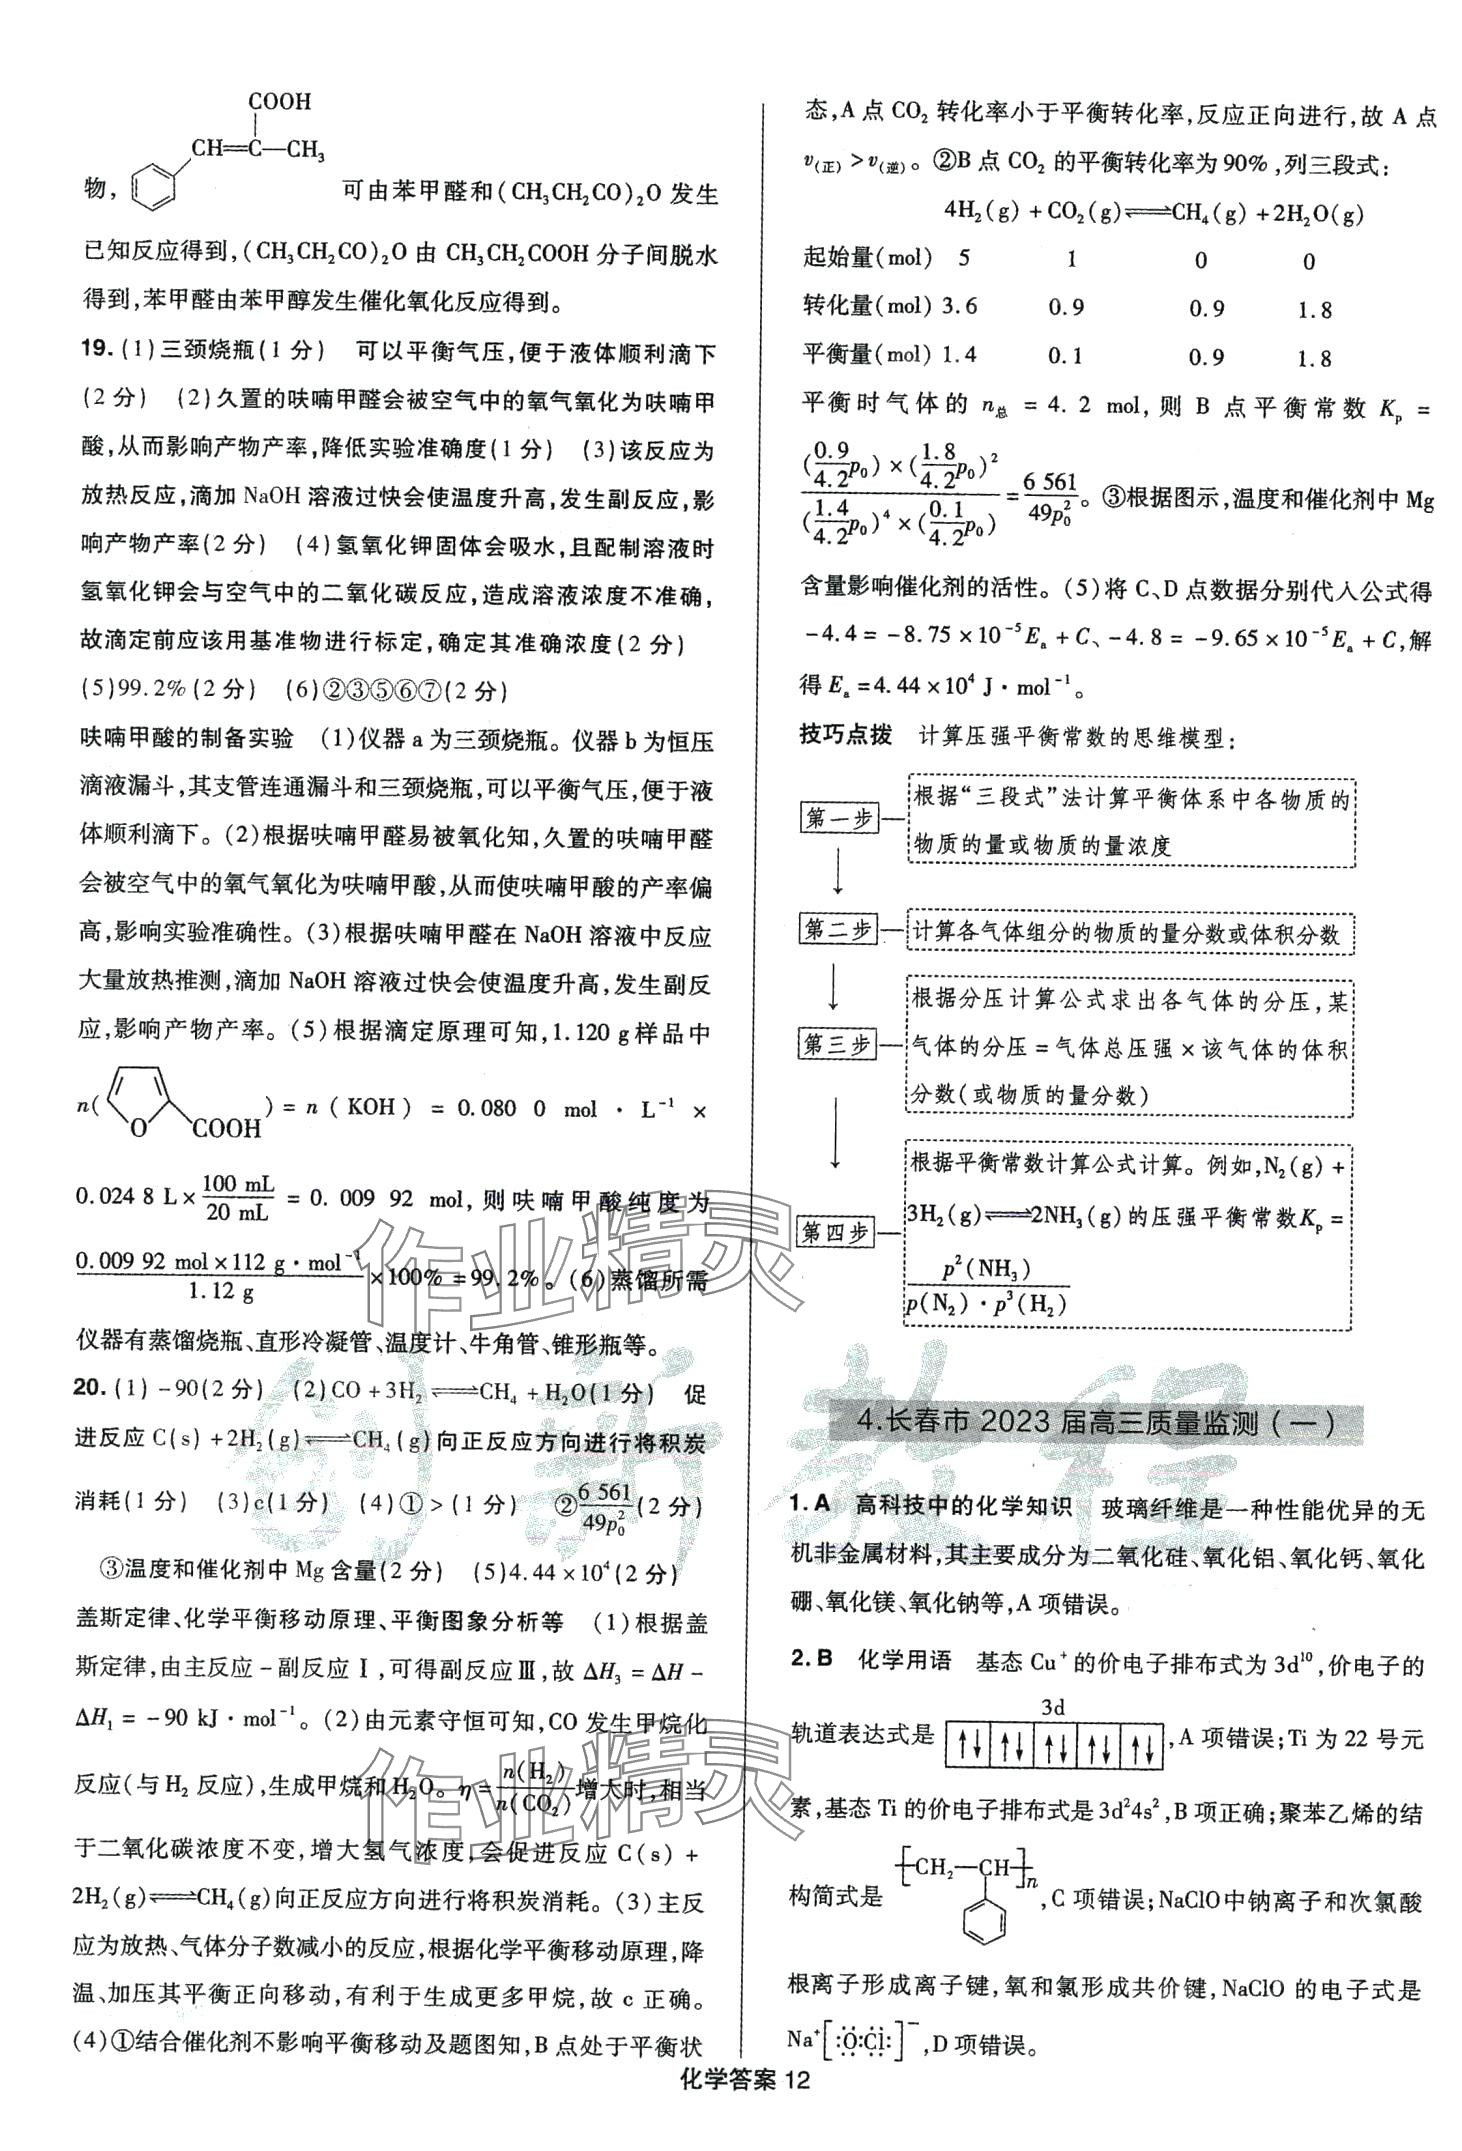 COOH
CH=C—CH₃
物, 可由苯甲醛和(CH₃CH₂CO)₂O 发生
已知反应得到,(CH₃CH₂CO)₂O 由 CH₃CH₂COOH 分子间脱水
得到,苯甲醛由苯甲醇发生催化氧化反应得到。
19.(1)三颈烧瓶(1 分) 可以平衡气压,便于液体顺利滴下
(2 分) (2)久置的呋喃甲醛会被空气中的氧气氧化为呋喃甲
酸,从而影响产物产率,降低实验准确度(1 分) (3)该反应为
放热反应,滴加 NaOH 溶液过快会使温度升高,发生副反应,影
响产物产率(2 分) (4)氢氧化钾固体会吸水,且配制溶液时
氢氧化钾会与空气中的二氧化碳反应,造成溶液浓度不准确,
故滴定前应该用基准物进行标定,确定其准确浓度(2 分)
(5)99.2%(2 分) (6)②③⑤⑥⑦(2 分)
呋喃甲酸的制备实验 (1)仪器 a 为三颈烧瓶。仪器 b 为恒压
滴液漏斗,其支管连通漏斗和三颈烧瓶,可以平衡气压,便于液
体顺利滴下。(2)根据呋喃甲醛易被氧化知,久置的呋喃甲醛
会被空气中的氧气氧化为呋喃甲酸,从而使呋喃甲酸的产率偏
高,影响实验准确性。(3)根据呋喃甲醛在 NaOH 溶液中反应
大量放热推测,滴加 NaOH 溶液过快会使温度升高,发生副反
应,影响产物产率。(5)根据滴定原理可知,1.120 g 样品中
n( O COOH ) = n ( KOH ) = 0.080 0 mol · L⁻¹ ×
0.024 8 L × 100 mL/20 mL = 0. 009 92 mol, 则呋喃甲酸纯度为
0.009 92 mol × 112 g · mol⁻¹/1.12 g × 100% = 99.2%。(6)蒸馏所需
仪器有蒸馏烧瓶、直形冷凝管、温度计、牛角管、锥形瓶等。
20.(1) -90(2 分) (2)CO + 3H₂ ⇌ CH₄ + H₂O(1 分) 促
进反应 C(s) +2H₂(g)⇌CH₄(g)向正反应方向进行将积炭
消耗(1 分) (3)c(1 分) (4)① > (1 分) ②6 561/49p₀²(2 分)
③温度和催化剂中 Mg 含量(2 分) (5)4.44 × 10⁴(2 分)
盖斯定律、化学平衡移动原理、平衡图象分析等 (1)根据盖
斯定律,由主反应 - 副反应Ⅰ,可得副反应Ⅲ,故 ΔH₃ = ΔH -
ΔH₁ = -90 kJ · mol⁻¹。(2)由元素守恒可知,CO 发生甲烷化
反应(与 H₂ 反应),生成甲烷和 H₂O。η = n(H₂)/n(CO₂)增大时,相当
于二氧化碳浓度不变,增大氢气浓度,会促进反应 C(s) +
2H₂(g)⇌CH₄(g)向正反应方向进行将积炭消耗。(3)主反
应为放热、气体分子数减小的反应,根据化学平衡移动原理,降
温、加压其平衡正向移动,有利于生成更多甲烷,故 c 正确。
(4)①结合催化剂不影响平衡移动及题图知,B 点处于平衡状
态,A 点 CO₂ 转化率小于平衡转化率,反应正向进行,故 A 点
v(正) > v(逆)。②B 点 CO₂ 的平衡转化率为 90%,列三段式:
4H₂(g) + CO₂(g)⇌CH₄(g) +2H₂O(g)
起始量(mol) 5 1 0 0
转化量(mol) 3.6 0.9 0.9 1.8
平衡量(mol) 1.4 0.1 0.9 1.8
平衡时气体的 n总 = 4.2 mol,则 B 点平衡常数 Kₚ =
(0.9/4.2 p₀) × (1.8/4.2 p₀)² / (1.4/4.2 p₀)⁴ × (0.1/4.2 p₀) = 6 561/49p₀²。③根据图示,温度和催化剂中 Mg
含量影响催化剂的活性。(5)将 C、D 点数据分别代入公式得
-4.4 = -8.75 × 10⁻⁵Eₐ + C、-4.8 = -9.65 × 10⁻⁵Eₐ + C,解
得 Eₐ = 4.44 × 10⁴ J · mol⁻¹。
技巧点拨 计算压强平衡常数的思维模型:
第一步 根据“三段式”法计算平衡体系中各物质的
物质的量或物质的量浓度
第二步 计算各气体组分的物质的量分数或体积分数
根据分压计算公式求出各气体的分压,某
第三步 气体的分压 = 气体总压强 × 该气体的体积
分数(或物质的量分数)
根据平衡常数计算公式计算。例如,N₂(g) +
第四步 3H₂(g)⇌2NH₃(g)的压强平衡常数Kₚ =
p²(NH₃)/p(N₂) · p³(H₂)
4.长春市 2023 届高三质量监测(一)
1.A 高科技中的化学知识 玻璃纤维是一种性能优异的无
机非金属材料,其主要成分为二氧化硅、氧化铝、氧化钙、氧化
硼、氧化镁、氧化钠等,A 项错误。
2.B 化学用语 基态 Cu⁺ 的价电子排布式为 3d¹⁰,价电子的
3d
轨道表达式是 ↑↓ ↑↓ ↑↓ ↑↓ ↑↓ ,A 项错误;Ti 为 22 号元
素,基态 Ti 的价电子排布式是 3d²4s²,B 项正确;聚苯乙烯的结
构简式是 [CH₂—CH]n ,C 项错误;NaClO 中钠离子和次氯酸
根离子形成离子键,氧和氯形成共价键,NaClO 的电子式是
Na⁺[:Ö:Cl:]⁻,D 项错误。
化学答案 12
作业精灵
作业精灵
创新教程